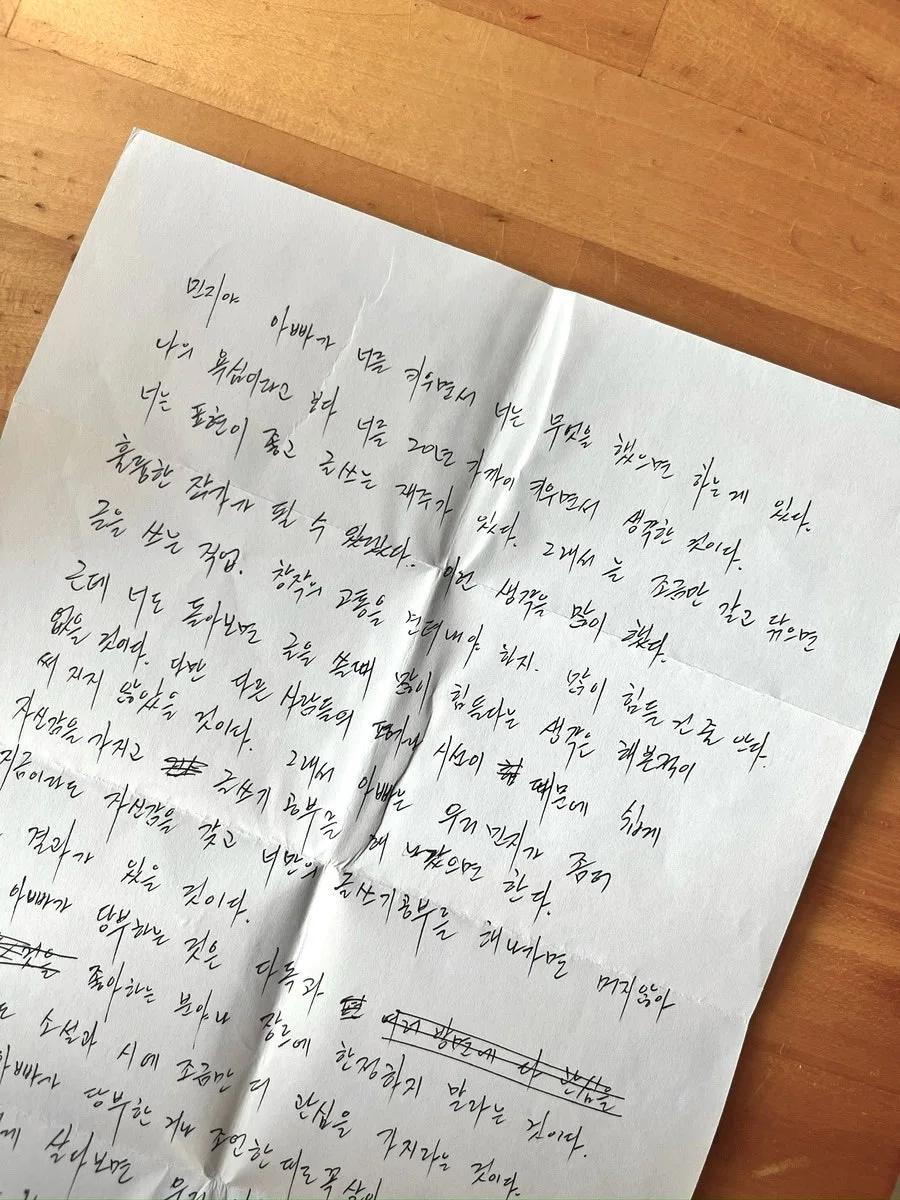 민지야 아빠가 너를 키우면서 너는 무엇을 했으면 하는게 있다.
나의 욕심이라고 보다 너를 20년 가까이 키우면서 생각한 것이다.
너는 표현이 좋고 글쓰는 재주가 있다. 그래서 늘 조금만 갈고 닦으면
훌륭한 작가가 될 수 있겠다. 이런 생각을 많이 했다.
글을 쓰는 직업. 창작의 고통을 견뎌내야 하지. 많이 힘들 건 줄 안다.
근데 너도 돌아보면 글을 쓸때 많이 힘들다는 생각은 해본적이
없을 것이다. 다만 다른 사람들의 시선이 때문에 쉽게
써 지지 않았을 것이다. 그래서 아빠는 우리 민지가 좀더
자신감을 가지고 글쓰기 공부를 해 나갔으면 한다.
지금이라도 자신감을 갖고 너만의 글쓰기공부를 해나가면 머지않아
결과가 있을 것이다.
아빠가 당부하는 것은 다독과 여러 방면에 다 관심을
좋아하는 분야나 장르에 한정하지 말라는 것이다.
소설과 시에 조금만 더 관심을 가지라는 것이다.
아빠가 당부한 거나 조언한 때도
살다보면